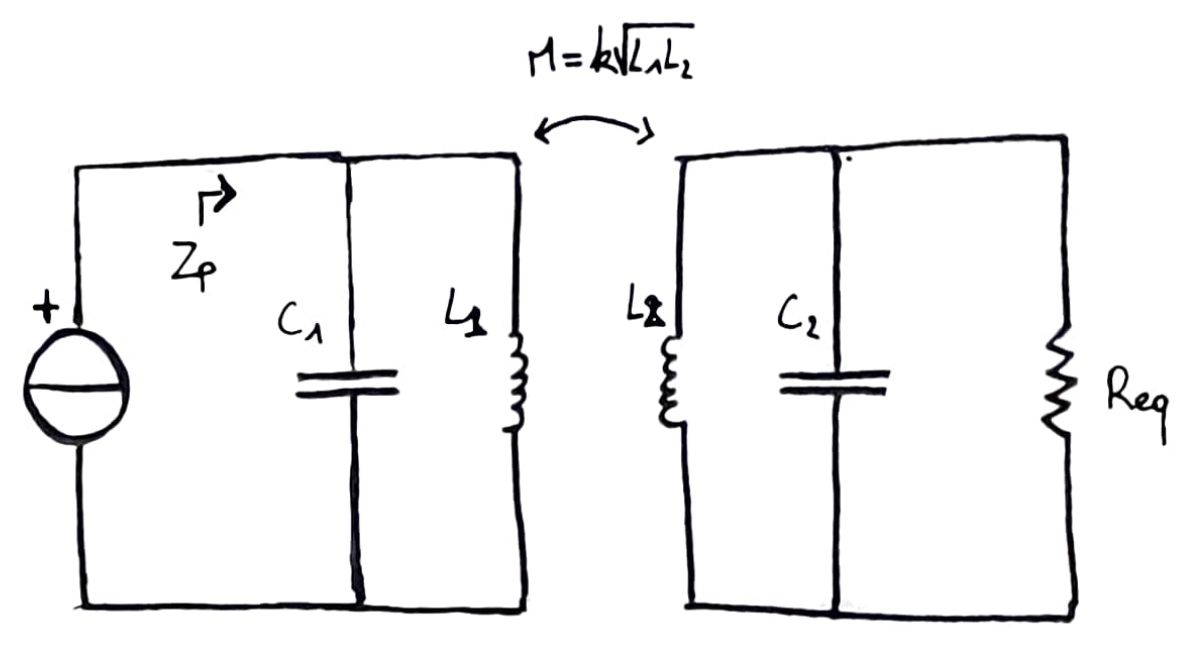 M=k√L₁L₂
Zp
+
C₁
L1
L2
C₂
Req